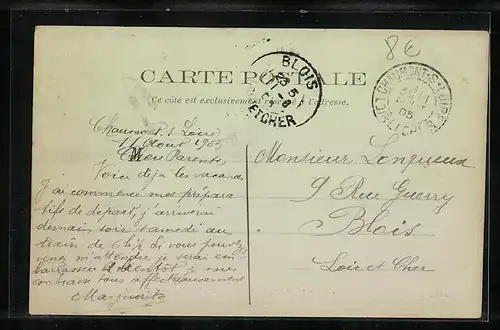 8€
CARTE POSTALE
Ce côté est exclusivement réservé à l'adresse.
BLOIS
LOIR-ET-CHER
CHAUMONT-S-LOIRE
LOIR-ET-CHER
05
Chaumont s Loire
11 Aout 1905
Mes Parents
Voici déjà les vacances
j'ai commencé mes prépara
tifs de départ, j'arriverai
demain soir samedi au
train de 6h ½ Si vous pouvez
venez m'attendre je serai em
barrassée à bientôt je vous
embrasse tous affectueusement
Marguerite
Monsieur Longueux
9 Rue Guerry
Blois
Loir et Cher